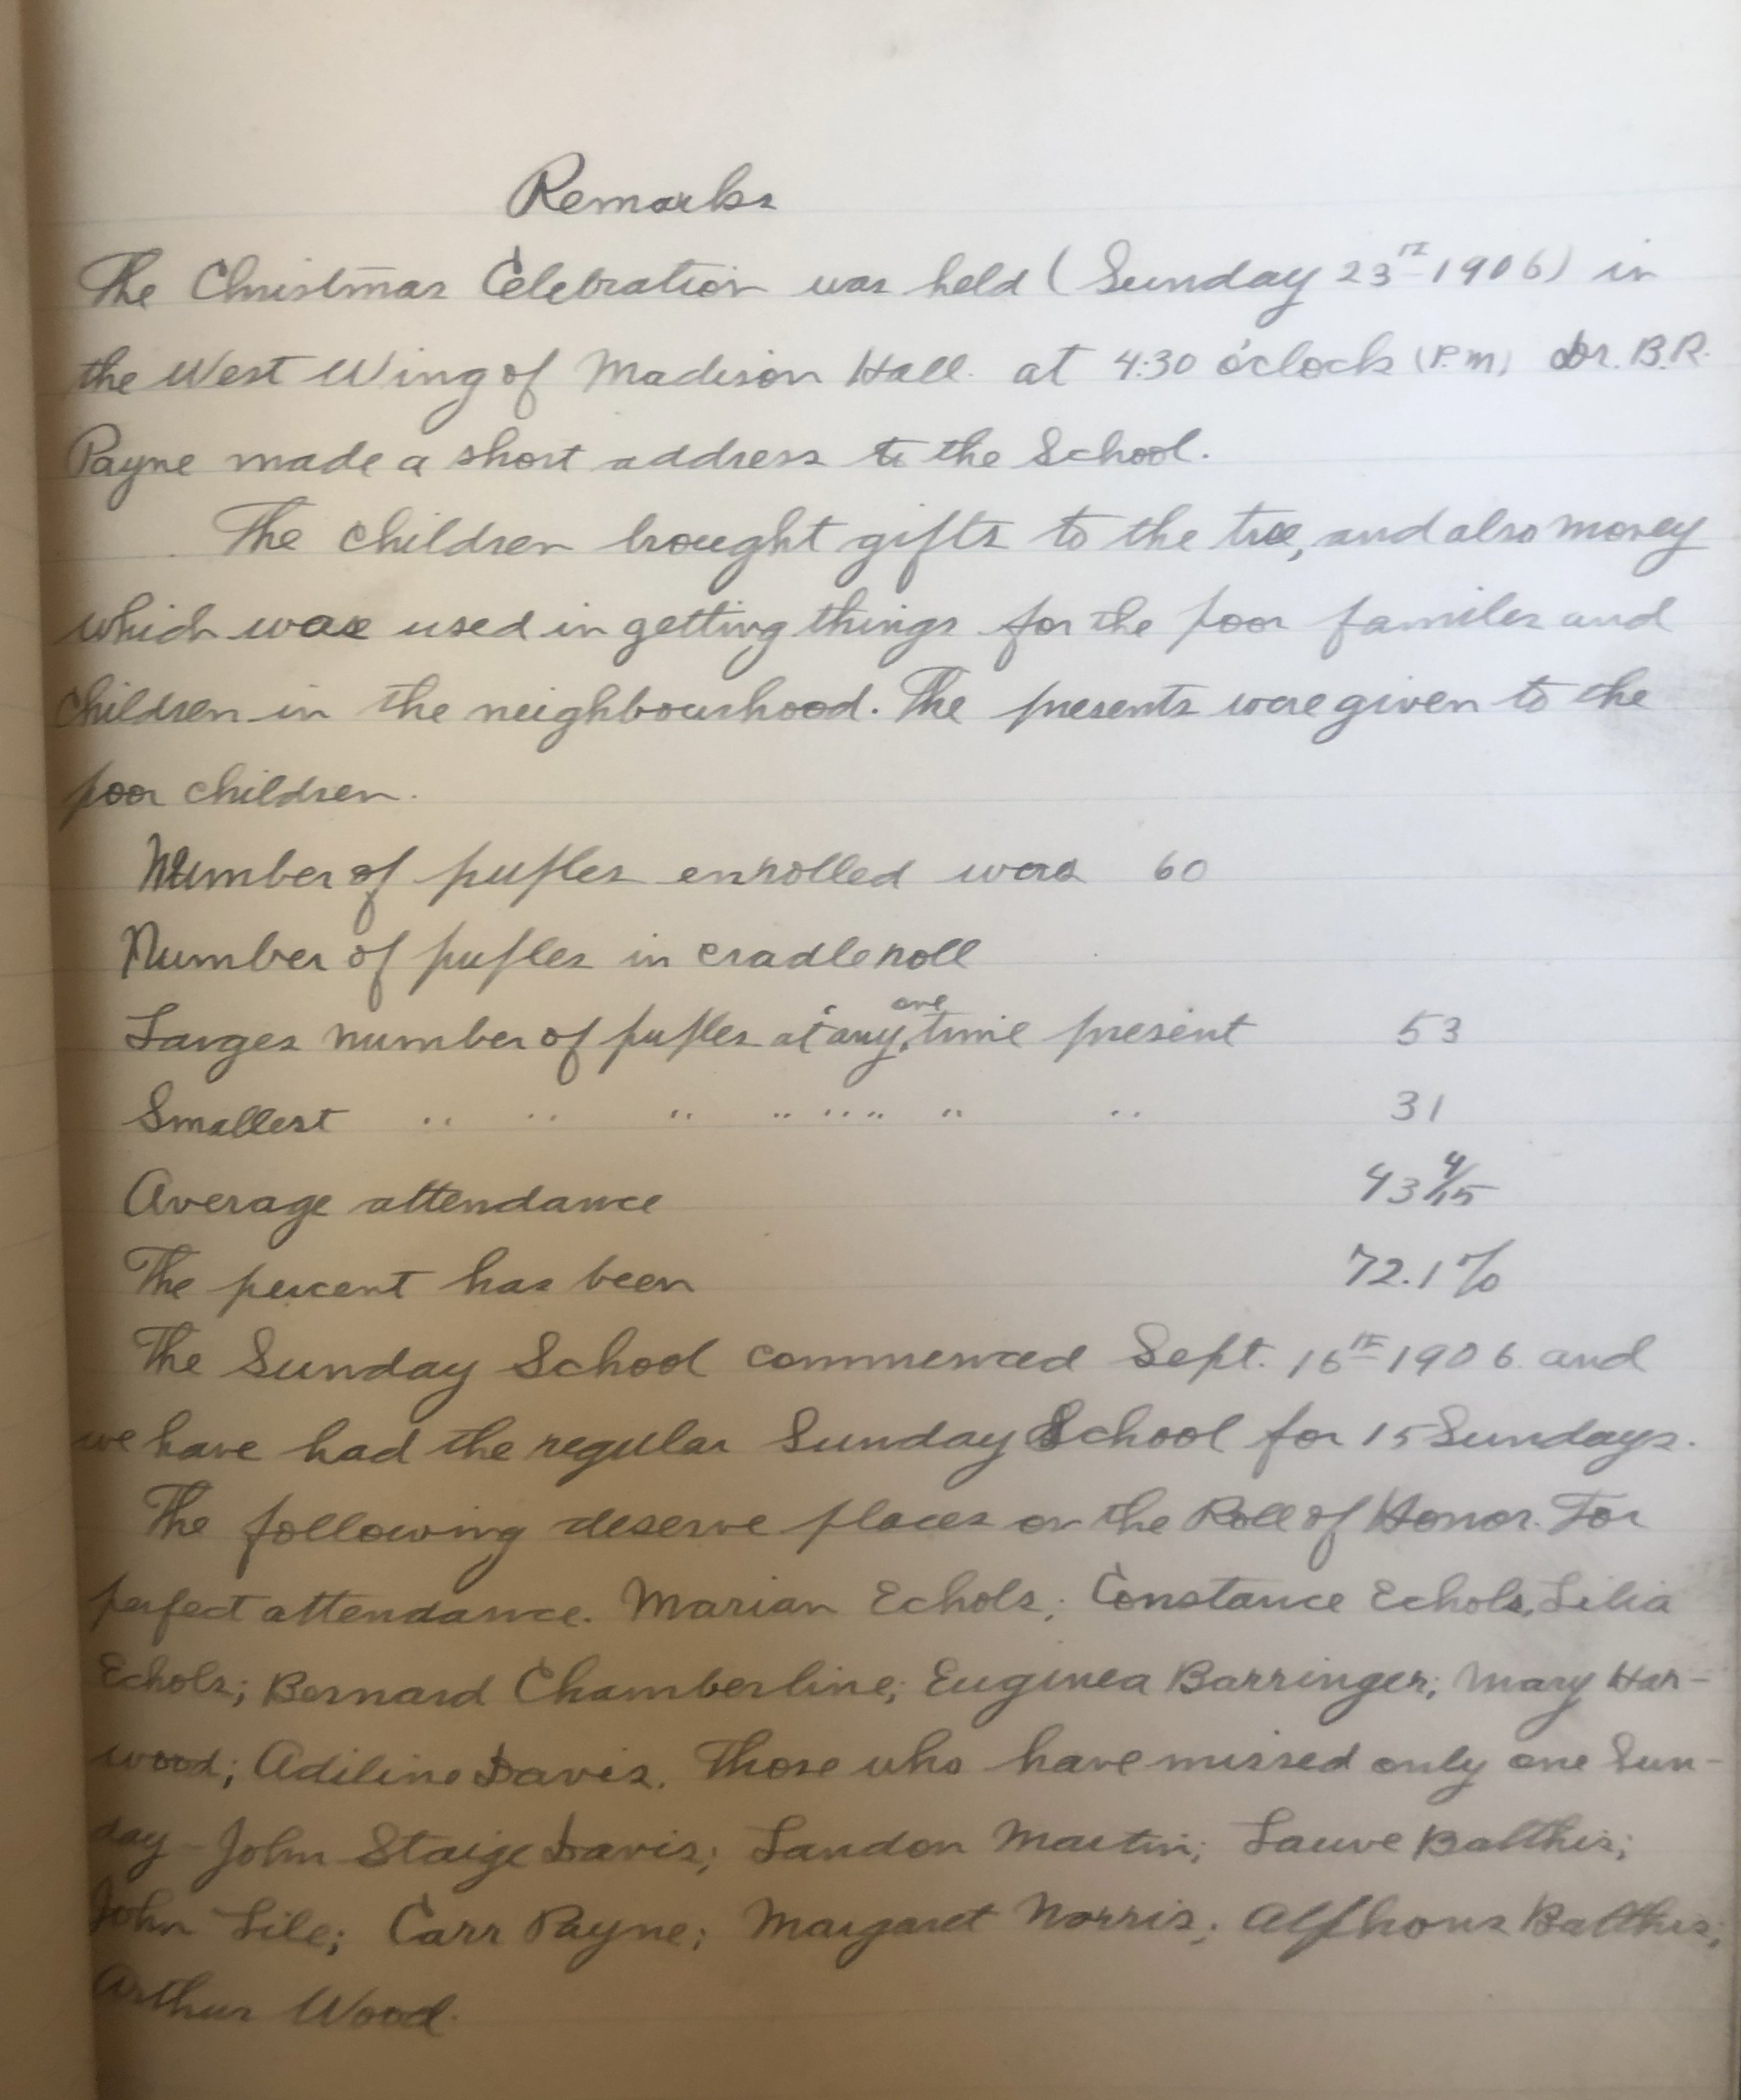 Remarks
The Christmas Celebration was held (Sunday 23rd 1906) in
the West Wing of Madison Hall. at 4:30 o'clock (P.M) Dr. B.R.
Payne made a short address to the School.
The children brought gifts to the tree, and also money
which was used in getting things for the poor familes and
children in the neighbourhood. The presents were given to the
poor children.
Number of puples enrolled were 60
Number of puples in cradle roll
Larges number of puples at any one time present 53
Smallest " " " " " " " " 31
Average attendance 43 4/15
The percent has been 72.1%
The Sunday School commenced Sept. 16th 1906. and
we have had the regular Sunday School for 15 Sundays.
The following deserve places on the Roll of Honor. For
perfect attendance. Marian Echols; Constance Echols, Lilia
Echols; Bernard Chamberline; Euginea Barringer; Mary Har-
wood; Adiline Davis. Those who have missed only one Sun-
day - John Staige Davis; Landon Martin; Lauve Balthis;
John Lile; Carr Payne; Margaret Norris; Alfhons Balthis;
Arthur Wood.